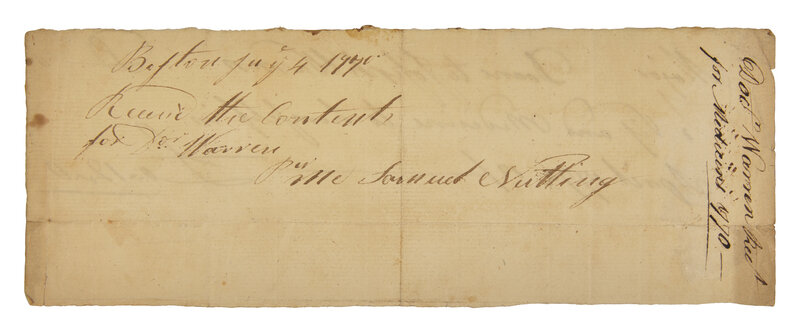 Boston July 4 1770
Receiv'd the Contents
for Doc.r Warren
Pr me Samuel Nutting
Doc.r Warren Rec.t
for Medicines 1770